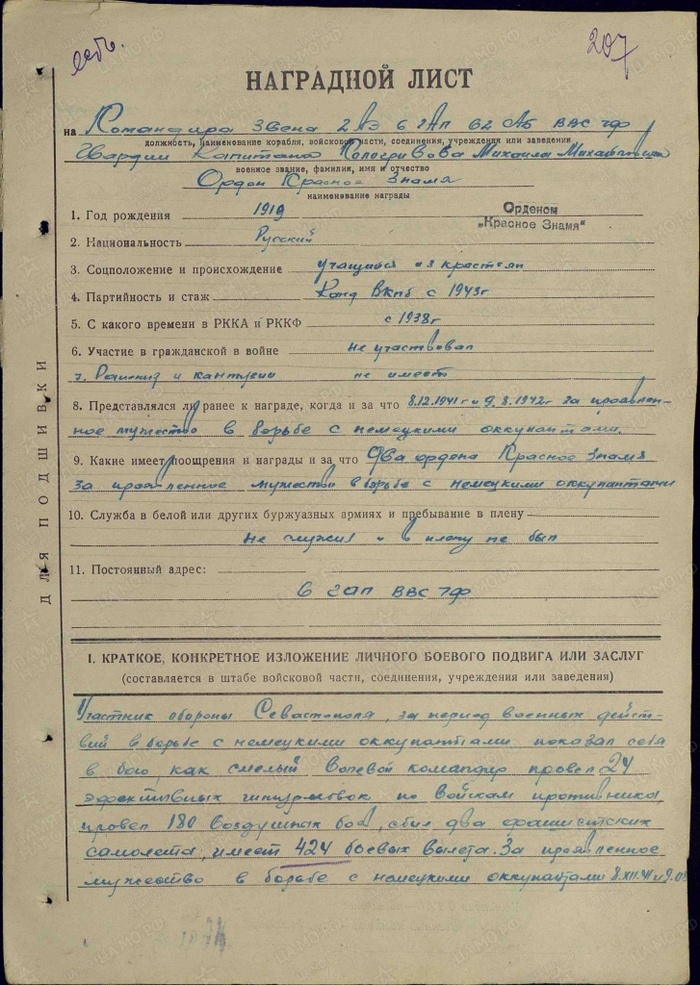 207
НАГРАДНОЙ ЛИСТ
на Командира звена 2 АЭ 6 ГАП 62 АБ ВВС ЧФ
должность, наименование корабля, войсковой части, соединения, учреждения или заведения
Гвардии Капитана Пологривова Михаила
военное звание, фамилия, имя и отчество
Орден Красное Знамя
наименование награды
1. Год рождения 1919
Орденом
„Красное Знамя"
2. Национальность Русский
3. Соцположение и происхождение учащийся из крестьян
4. Партийность и стаж Канд ВКПб с 1943г
5. С какого времени в РККА и РККФ с 1938г
6. Участие в гражданской в войне не участвовал
7. Ранения и кантузии не имеет
8. Представлялся ли ранее к награде, когда и за что 8.12.1941г и 9.8.1942г за проявлен-
ное мужество в борьбе с немецкими оккупантами.
9. Какие имеет поощрения и награды и за что Два ордена Красное Знамя
за проявленное мужество в борьбе с немецкими оккупантами
10. Служба в белой или других буржуазных армиях и пребывание в плену
не служил и в плену не был
11. Постоянный адрес:
6 ГАП ВВС ЧФ
ДЛЯ ПОДШИВКИ
I. КРАТКОЕ, КОНКРЕТНОЕ ИЗЛОЖЕНИЕ ЛИЧНОГО БОЕВОГО ПОДВИГА ИЛИ ЗАСЛУГ
(составляется в штабе войсковой части, соединения, учреждения или заведения)
Участник обороны Севастополя, за период военных дейст-
вий в борьбе с немецкими оккупантами показал себя
в бою, как смелый волевой командир провел 24
эффективных штурмовок по войскам противника,
провел 180 воздушных боев, сбил два фашистских
самолета, имеет 424 боевых вылета. За проявленное
мужество в борьбе с немецкими оккупантами 8.XII.41 и 9.08